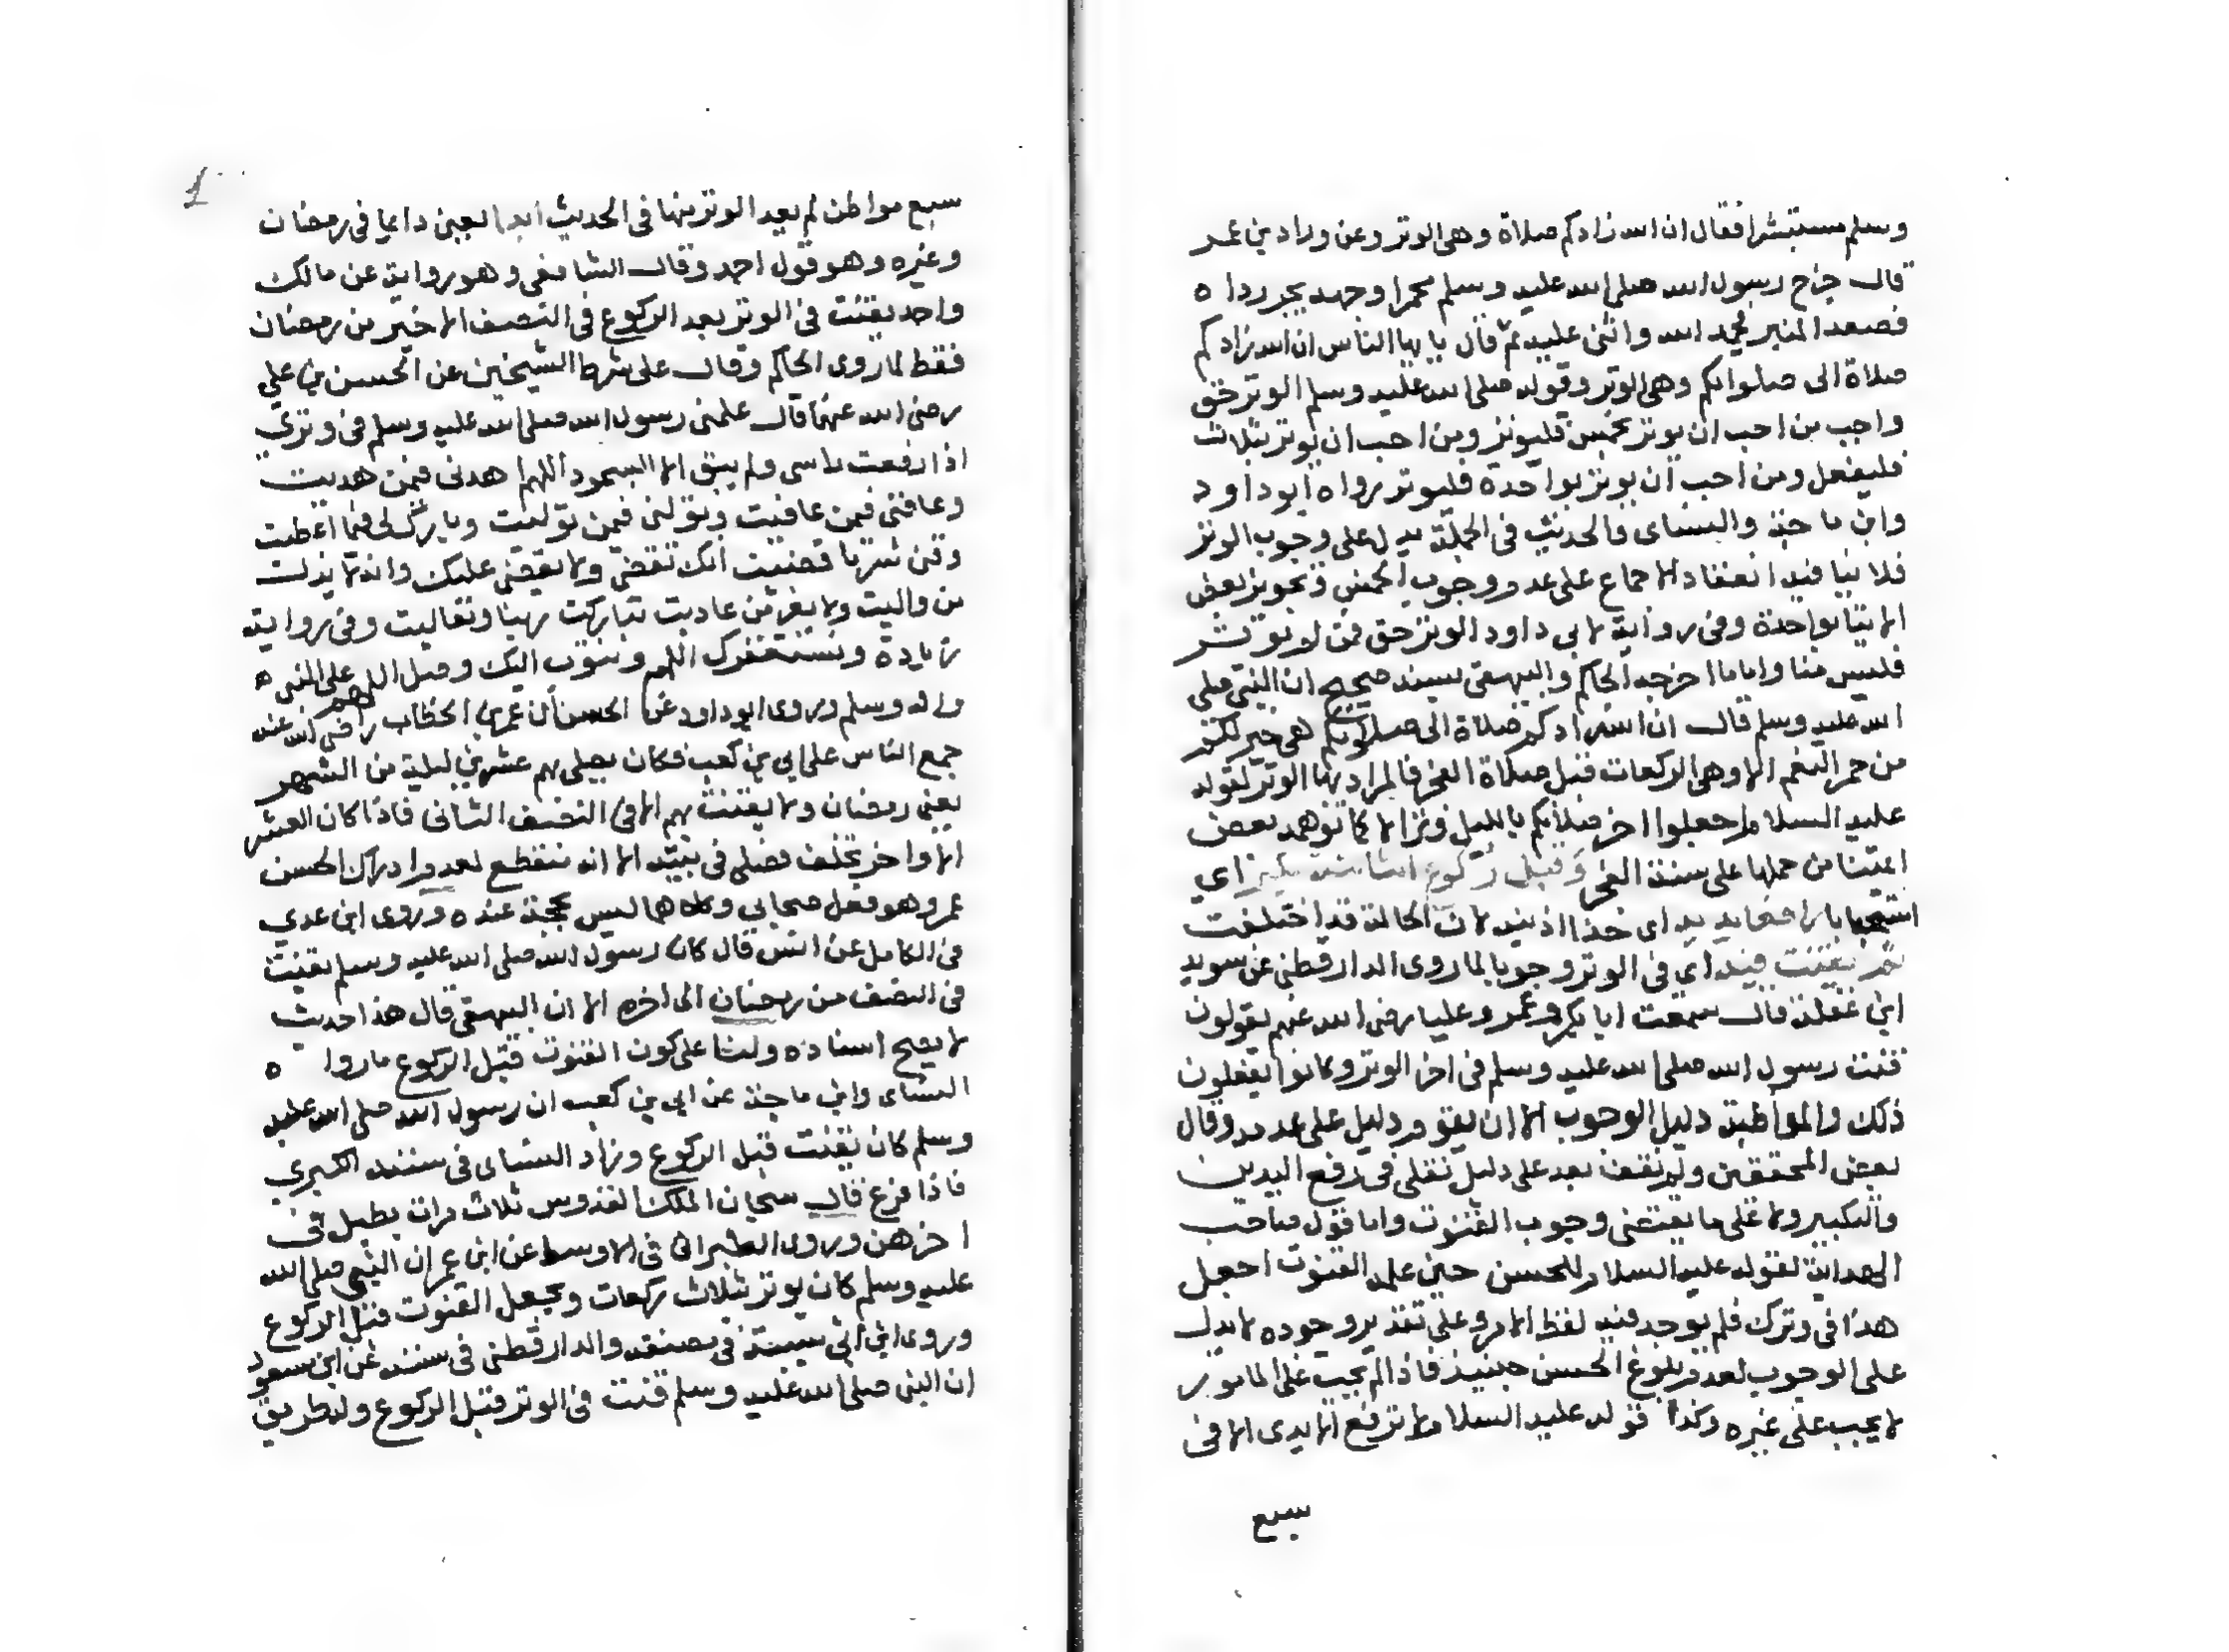 وسلم مستبشرا فقال ان الله زادكم صلاة وهى الوتر وعن ولاد بن عمر
قال خرج رسول الله صلى الله عليه وسلم محمرا وجهه يجر رداه
فصعد المنبر فحمد الله واثنى عليه ثم قال يايها الناس ان الله زادكم
صلاة الى صلواتكم وهى الوتر وقوله صلى الله عليه وسلم الوتر حق
واجب من احب ان يوتر بخمس فليوتر ومن احب ان يوتر بثلاث
فليفعل ومن احب ان يوتر بواحدة فليوتر رواه ابو داود
وابن ماجة والنساى فالحديث فى الجملة يدل على وجوب الوتر
فلا ينافيه انعقاد الاجماع على عدم وجوب الخمس وتجويز بعض
الايتا بواحدة وفى رواية لابى داود الوتر حق فمن لم يوتر
فليس منا واما ما اخرجه الحاكم والبيهقى بسند صحيح ان النبى صلى
الله عليه وسلم قال ان الله زادكم صلاة الى صلوتكم هى خير لكم
من حمر النعم الا وهى الركعات قبل صلاة الفجر فالمراد بها الوتر لقوله
عليه السلام اجعلوا اخر صلاتكم بالليل وترا لا كما توهمه بعض
ايمتنا من حملها على سنة الفجر وقبل ركوع الثالثة يكبر اى
استحبابا رافعا يديه اى حذا اذنيه لان الحالة قد اختلفت
ثم يقنت فيه اى فى الوتر وجوبا لما روى الدارقطنى عن سويد
ابن غفلة قال سمعت ابا بكر وعمر وعليا رضى الله عنهم يقولون
قنت رسول الله صلى الله عليه وسلم فى اخر الوتر وكانوا يفعلون
ذلك والمواظبة دليل الوجوب الا ان يقوم دليل على عدمه وقال
بعض المحققين ولم نقف بعد على دليل نقلى فى رفع اليدين
والتكبير ولا على ما يقتضى وجوب القنوت واما قول صاحب
الهداية لقوله عليه السلام للحسن حين علمه القنوت اجعل
هذا فى وترك فلم يوجد فيه لفظ الامر وعلى تقدير وجوده لا يدل
على الوجوب لعدم بلوغ الحسن حينيذ فاذا لم يجب على المامور
لا يجب على غيره وكذا قوله عليه السلام لا ترفع الايدى الا فى
سبع
سبع مواطن لم يعد الوتر منها فى الحديث ابدا يعنى دايما فى رمضان
وغيره وهو قول احمد وقال الشافعى وهو رواية عن مالك
واحمد يقنت فى الوتر بعد الركوع فى النصف الاخير من رمضان
فقط لما روى الحاكم وقال على شرط الشيخين عن الحسن بن على
رضى الله عنهما قال علمنى رسول الله صلى الله عليه وسلم فى وترى
اذا رفعت راسى ولم يبق الا السجود اللهم اهدنى فيمن هديت
وعافنى فيمن عافيت وتولنى فيمن توليت وبارك لى فيما اعطيت
وقنى شر ما قضيت انك تقضى ولا يقضى عليك وانه لا يذل
من واليت ولا يعز من عاديت تباركت ربنا وتعاليت وفى رواية
زيادة ونستغفرك اللهم ونتوب اليك وصل اللهم على النبى
واله وسلم وروى ابو داود عن الحسن ان عمر بن الخطاب رضى الله عنه
جمع الناس على ابى بن كعب فكان يصلى بهم عشرين ليلة من الشهر
يعنى رمضان ولا يقنت بهم الا فى النصف الثانى فاذا كان العشر
الاواخر تخلف فصلى فى بيته الا انه منقطع لعدم ادراك الحسن
عمر وهو فعل صحابى وكلاهما ليس بحجة عنده وروى ابن عدى
فى الكامل عن انس قال كان رسول الله صلى الله عليه وسلم يقنت
فى النصف من رمضان الى اخره الا ان البيهقى قال هذا حديث
لا يصح اسناده ولنا على كون القنوت قبل الركوع ما رواه
النساى وابن ماجة عن ابى بن كعب ان رسول الله صلى الله عليه
وسلم كان يقنت قبل الركوع وزاد النساى فى سننه الكبرى
فاذا فرغ قال سبحان الملك القدوس ثلاث مرات يطيل فى
اخرهن وروى الطبرانى فى الاوسط عن ابن عمر ان النبى صلى الله
عليه وسلم كان يوتر بثلاث ركعات ويجعل القنوت قبل الركوع
وروى ابن ابى شيبة فى مصنفه والدارقطنى فى سننه عن ابن مسعود
ان النبى صلى الله عليه وسلم قنت فى الوتر قبل الركوع وله طريق